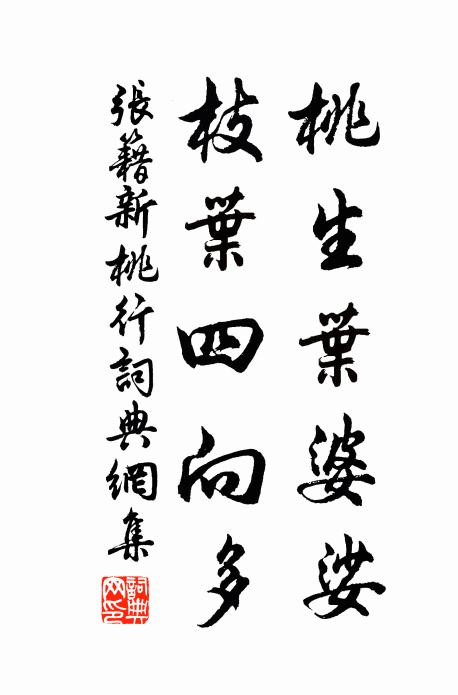 桃生葉婆娑
枝葉四向多
張籍新桃行詞典網集
詞典網印